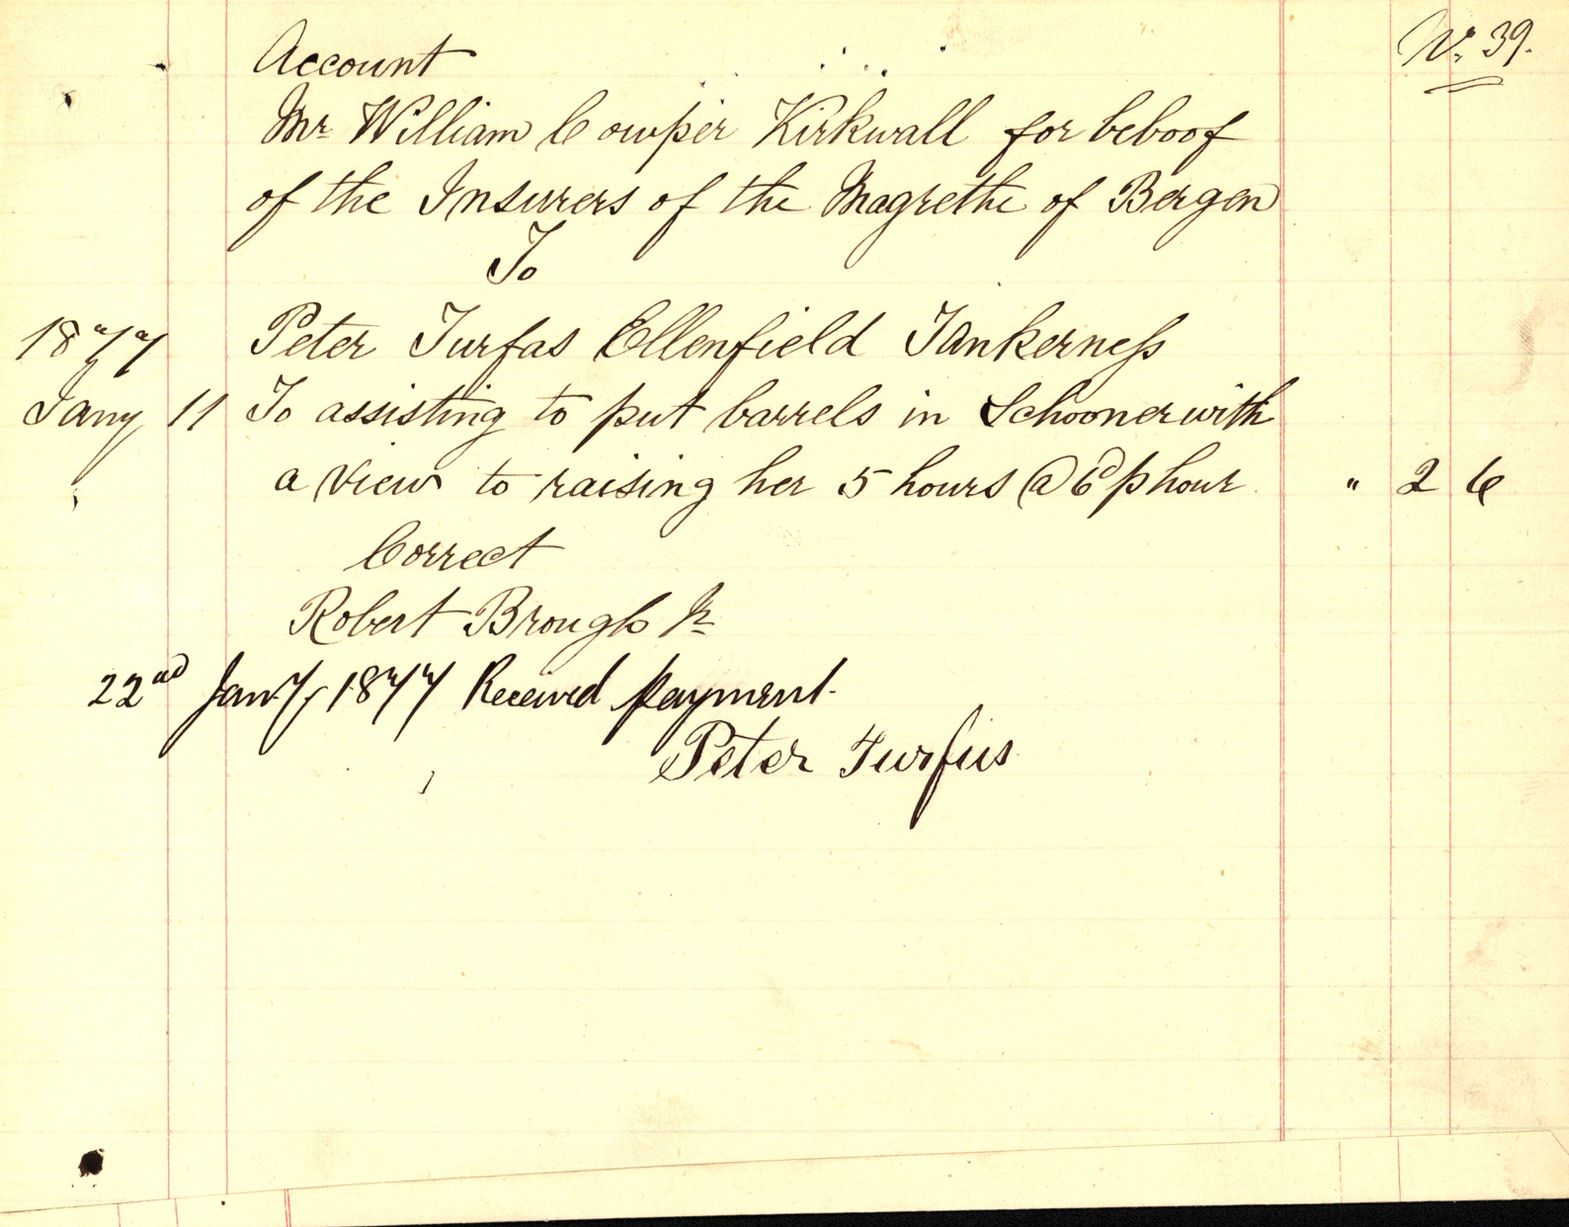 No. 39.
Account
Mr William Cowper Kirkwall for behoof
of the Insurers of the Magrethe of Bergen
To
1877 Peter Turfas Ellenfield Tankerness
Jany 11 To assisting to put barrels in Schooner with
a view to raising her 5 hours @ 6d p hour " 2 6
Correct
Robert Brough Jr
22nd Jany, 1877 Received payment.
Peter Turfus